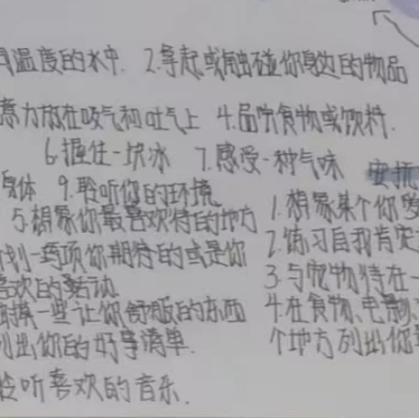 温度的水中. 2.拿起或触碰你身边的物品
意力放在吸气和吐气上 4.品尝食物或饮料.
6.握住一块冰 7.感受一种气味
身体 9.聆听你的环境
5.想象你最喜欢待的地方
划一两项你期待的或是你
喜欢的活动
触摸一些让你舒服的东西
列出你的好事清单.
聆听喜欢的音乐.
安抚
1.想象某个你
2.练习自我肯定
3.与宠物待在一
4.在食物、电影、
个地方列出你